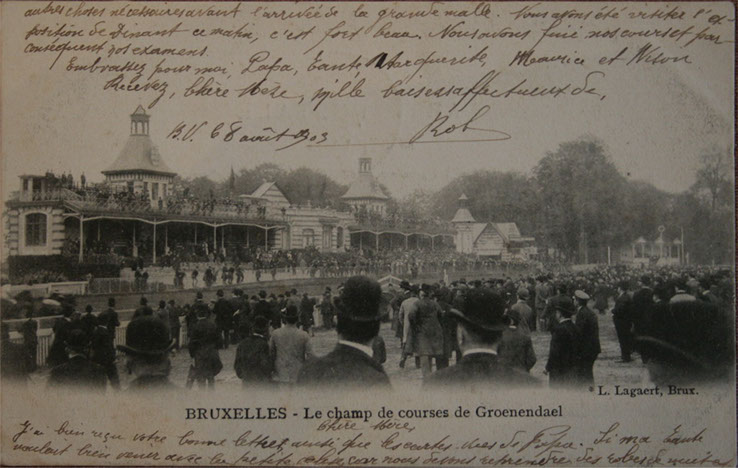 autres choses nécessaires avant l'arrivée de la grande malle. Nous avons été visiter l'ex-
position de Dinant ce matin, c'est fort beau. Nous avons fini nos courses et par
conséquent nos examens.
Embrassez pour moi, Papa, Tante, Marguerite, Maurice et
Recevez, Chère Mère, mille baisers affectueux de,
B.V. 8 août 1903 Rob
L. Lagaert, Brux.
BRUXELLES - Le champ de courses de Groenendael
Chère Mère
J'ai bien reçu votre bonne lettre, ainsi que les cartes vues de Papa. Si ma Tante
voulait bien venir avec la petite valise car nous devons reprendre des robes de nuit et